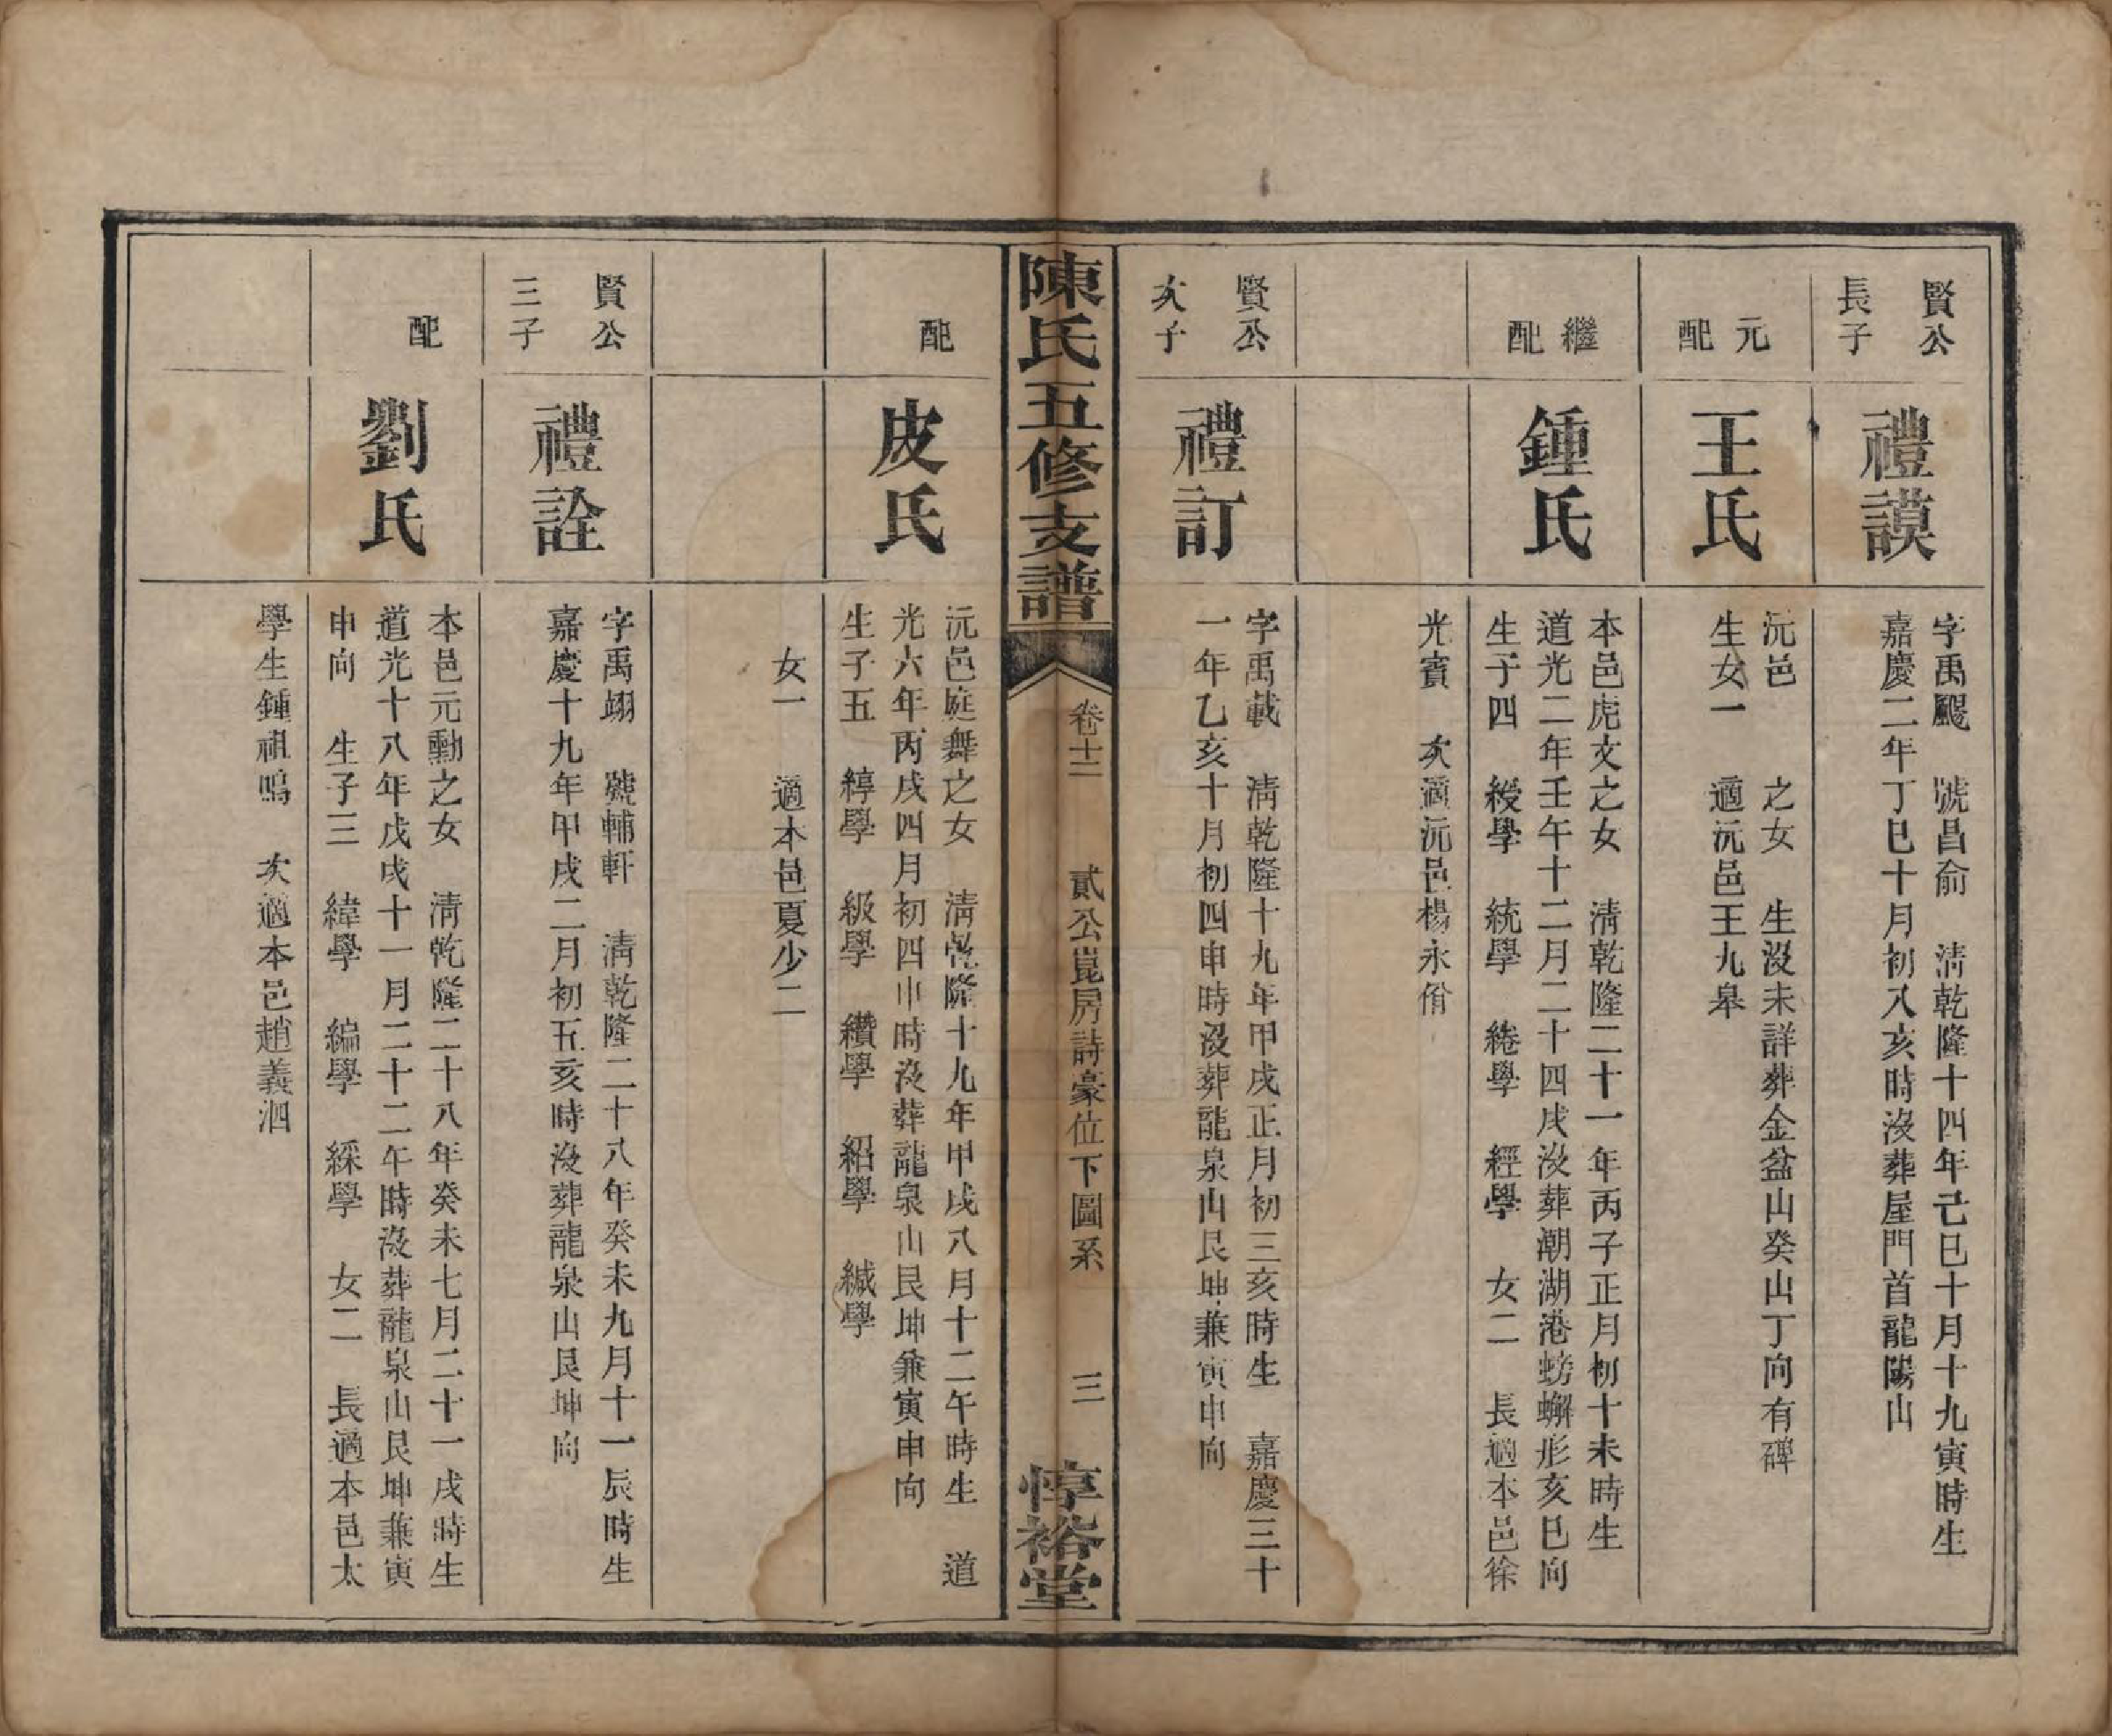 賢公
長子
禮謨
字禹颺　號昌俞　清乾隆十四年己巳十月十九寅時生
嘉慶二年丁巳十月初八亥時沒葬屋門首龍陽山
元
配
王氏
沅邑　　之女　生沒未詳葬金盆山癸山丁向有碑
生女一　適沅邑王九皋
繼
配
鍾氏
本邑虎文之女　清乾隆二十一年丙子正月初十未時生
道光二年壬午十二月二十四戌沒葬潮湖港螃蠏形亥巳向
生子四　綬學　統學　綣學　經學　女二　長適本邑徐
光賓　次適沅邑楊永佾
賢公
次子
禮訂
字禹載　清乾隆十九年甲戌正月初三亥時生　嘉慶三十
一年乙亥十月初四申時沒葬龍泉山艮坤兼寅申向
陳氏五修支譜
卷十二
貳公崑房詩豪位下圖系
三
惇裕堂
配
皮氏
沅邑庭舞之女　清乾隆十九年甲戌八月十二午時生　道
光六年丙戌四月初四申時沒葬龍泉山艮坤兼寅申向
生子五　綧學　級學　纘學　紹學　緘學
女一　適本邑夏少二
賢公
三子
禮詮
字禹翊　號輔軒　清乾隆二十八年癸未九月十一辰時生
嘉慶十九年甲戌二月初五亥時沒葬龍泉山艮坤向
配
劉氏
本邑元勳之女　清乾隆二十八年癸未七月二十一戌時生
道光十八年戊戌十一月二十二午時沒葬龍泉山艮坤兼寅
申向　生子三　緯學　編學　綵學　女二　長適本邑太
學生鍾祖鳴　次適本邑趙義泗